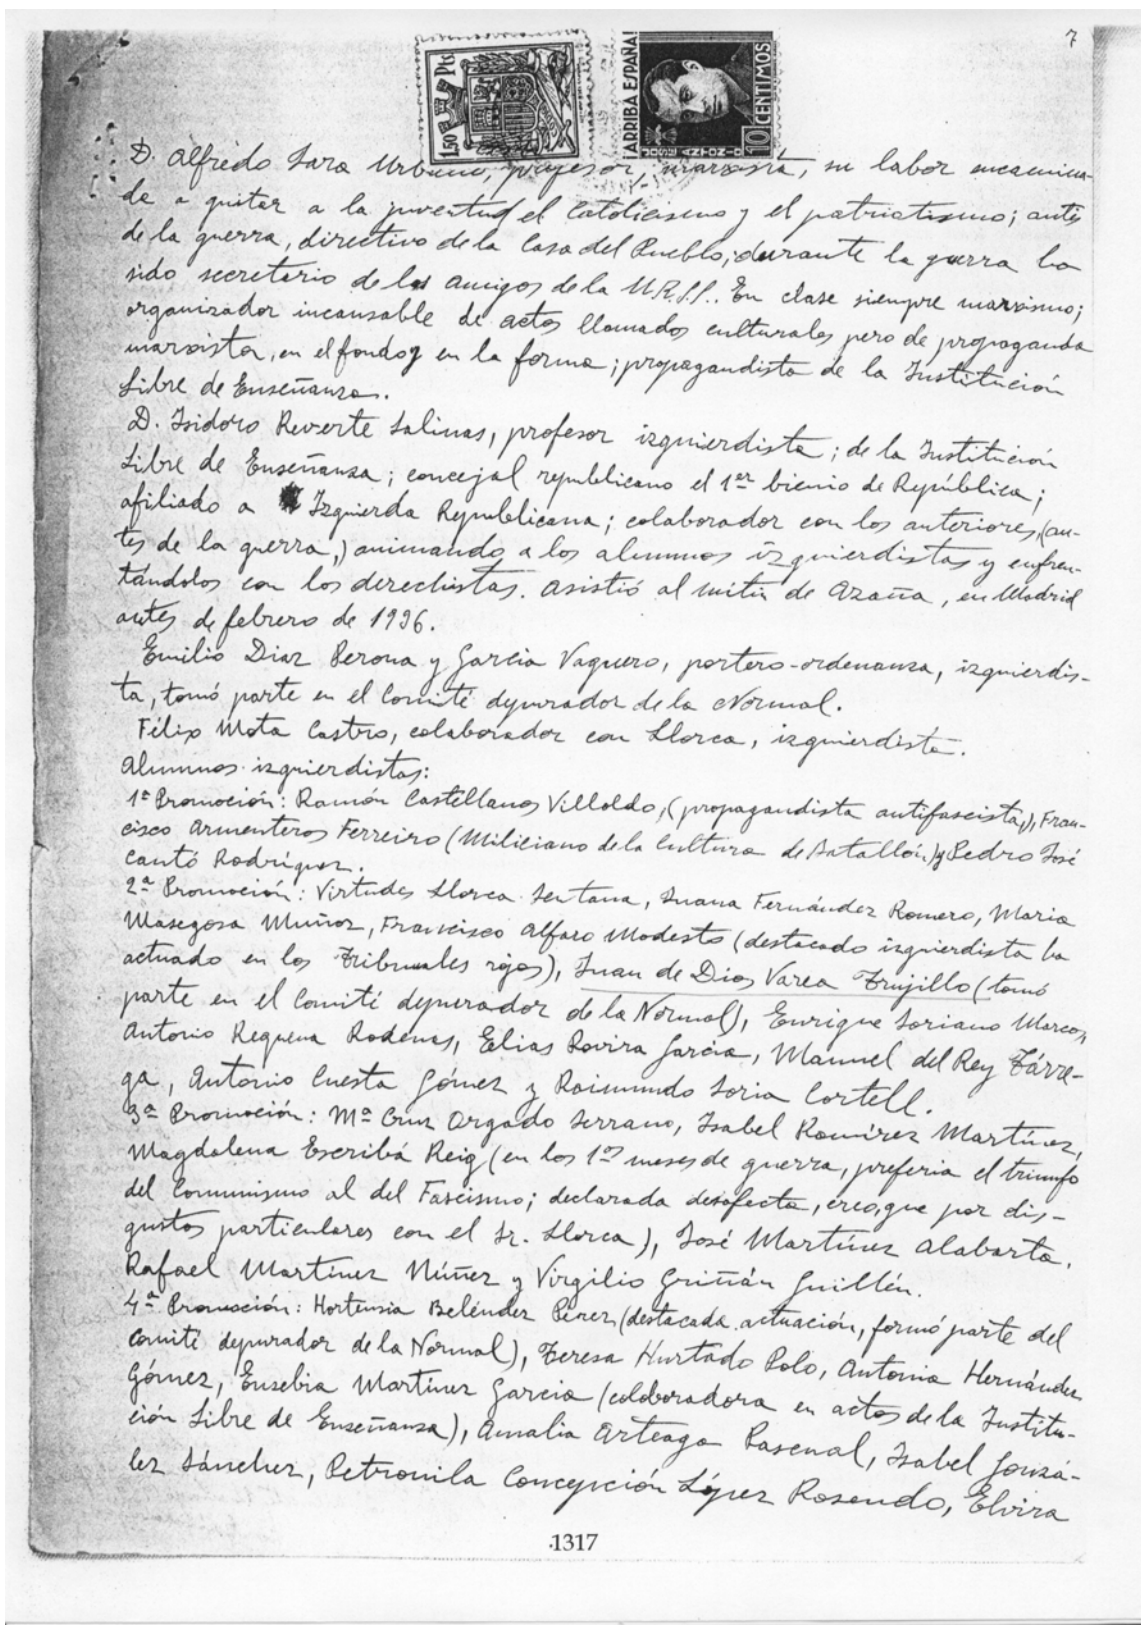 7
1'50 Pts
¡ARRIBA ESPAÑA!
JOSE ANTONIO
10 CENTIMOS
D. Alfredo Lara Urbano, profesor, marxista, su labor encamina-
da a quitar a la juventud el Catolicismo y el patriotismo; antes
de la guerra, directivo de la Casa del Pueblo; durante la guerra ha
sido secretario de los Amigos de la U.R.S.S.. En clase siempre marxismo;
organizador incansable de actos llamados culturales pero de propaganda
marxista, en el fondo y en la forma; propagandista de la Institución
Libre de Enseñanza.
D. Isidoro Reverte Salinas, profesor izquierdista; de la Institución
Libre de Enseñanza; concejal republicano el 1er bienio de República;
afiliado a Izquierda Republicana; colaborador con los anteriores, (an-
tes de la guerra,) animando a los alumnos izquierdistas y enfren-
tándolos con los derechistas. Asistió al mitin de Azaña, en Madrid
antes de febrero de 1936.
Emilio Diaz Perona y García Vaquero, portero-ordenanza, izquierdis-
ta, tomó parte en el Comité depurador de la Normal.
Félix Mota Castro, colaborador con Llorca, izquierdista.
Alumnos izquierdistas:
1ª Promoción: Ramón Castellanos Villoldo, (propagandista antifascista,), Fran-
cisco Armenteros Ferreiro (Miliciano de la Cultura de Batallón) y Pedro José
Cantó Rodríguez.
2ª Promoción: Virtudes Llorca Sentana, Juana Fernández Romero, Maria
Masegosa Muñoz, Francisco Alfaro Modesto (destacado izquierdista ha
actuado en los Tribunales rojos), Juan de Dios Varea Trujillo (tomó
parte en el Comité depurador de la Normal), Enrique Soriano Marcos,
Antonio Requena Rodenas, Elias Rovira García, Manuel del Rey Tárre-
ga, Antonio Cuesta Gómez y Raimundo Soria Cortell.
3ª Promoción: Mª Cruz Orgado Serrano, Isabel Ramírez Martínez,
Magdalena Escribá Reig (en los 1os meses de guerra, preferia el triunfo
del Comunismo al del Fascismo; declarada desafecta, creo, que por dis-
gustos particulares con el Sr. Llorca), José Martínez Alabarta,
Rafael Martínez Núñez y Virgilio Griñán Guillén.
4ª Promoción: Hortensia Beléndez Pérez (destacada actuación, formó parte del
Comité depurador de la Normal), Teresa Hurtado Polo, Antonia Hernández
Gómez, Eusebia Martínez García (colaboradora en actos de la Institu-
ción Libre de Enseñanza), Amalia Arteaga Pascual, Isabel Gonzá-
lez Sánchez, Petronila Concepción López Rosendo, Elvira
1317